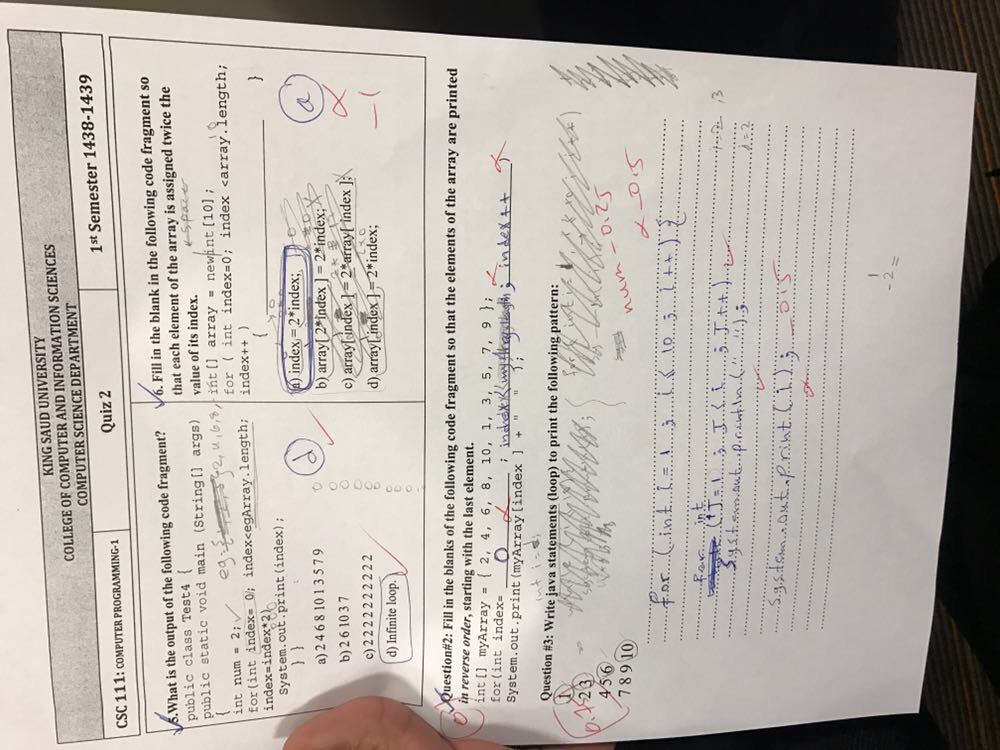 KING SAUD UNIVERSITY
COLLEGE OF COMPUTER AND INFORMATION SCIENCES
COMPUTER SCIENCE DEPARTMENT
CSC 111: COMPUTER PROGRAMMING-1
Quiz 2
1st Semester 1438-1439
5.What is the output of the following code fragment?
public class Test4 {
public static void main (String[] args)
{
int num = 2;
for(int index= 0; index<egArray.length;
index=index*2)
System.out.print(index);
} }
a) 2 4 6 8 10 1 3 5 7 9
b) 2 6 10 3 7
c) 2 2 2 2 2 2 2 2 2 2
d) Infinite loop.
d
6. Fill in the blank in the following code fragment so
that each element of the array is assigned twice the
value of its index.
space
int[] array = newint[10];
for ( int index=0; index <array.length;
index++ )
{ }
a) index = 2*index;
b) array[ 2*index ] = 2*index;
c) array[ index ] = 2*array[ index ];
d) array[ index ] = 2*index;
a
-1
Question#2: Fill in the blanks of the following code fragment so that the elements of the array are printed
in reverse order, starting with the last element.
int[] myArray = { 2, 4, 6, 8, 10, 1, 3, 5, 7, 9 };
for(int index= 0 ; ; index++ )
System.out.print(myArray[index ] + " " );
Question #3: Write java statements (loop) to print the following pattern:
1
2 3
4 5 6
7 8 9 10
0.75
num -0.25
-0.5
for (int i=1 ; i<10 ; i++) {
for int
(J=1 ; J<i ; J++)
System.out.println(" ");
System.out.print(i);
-0.5